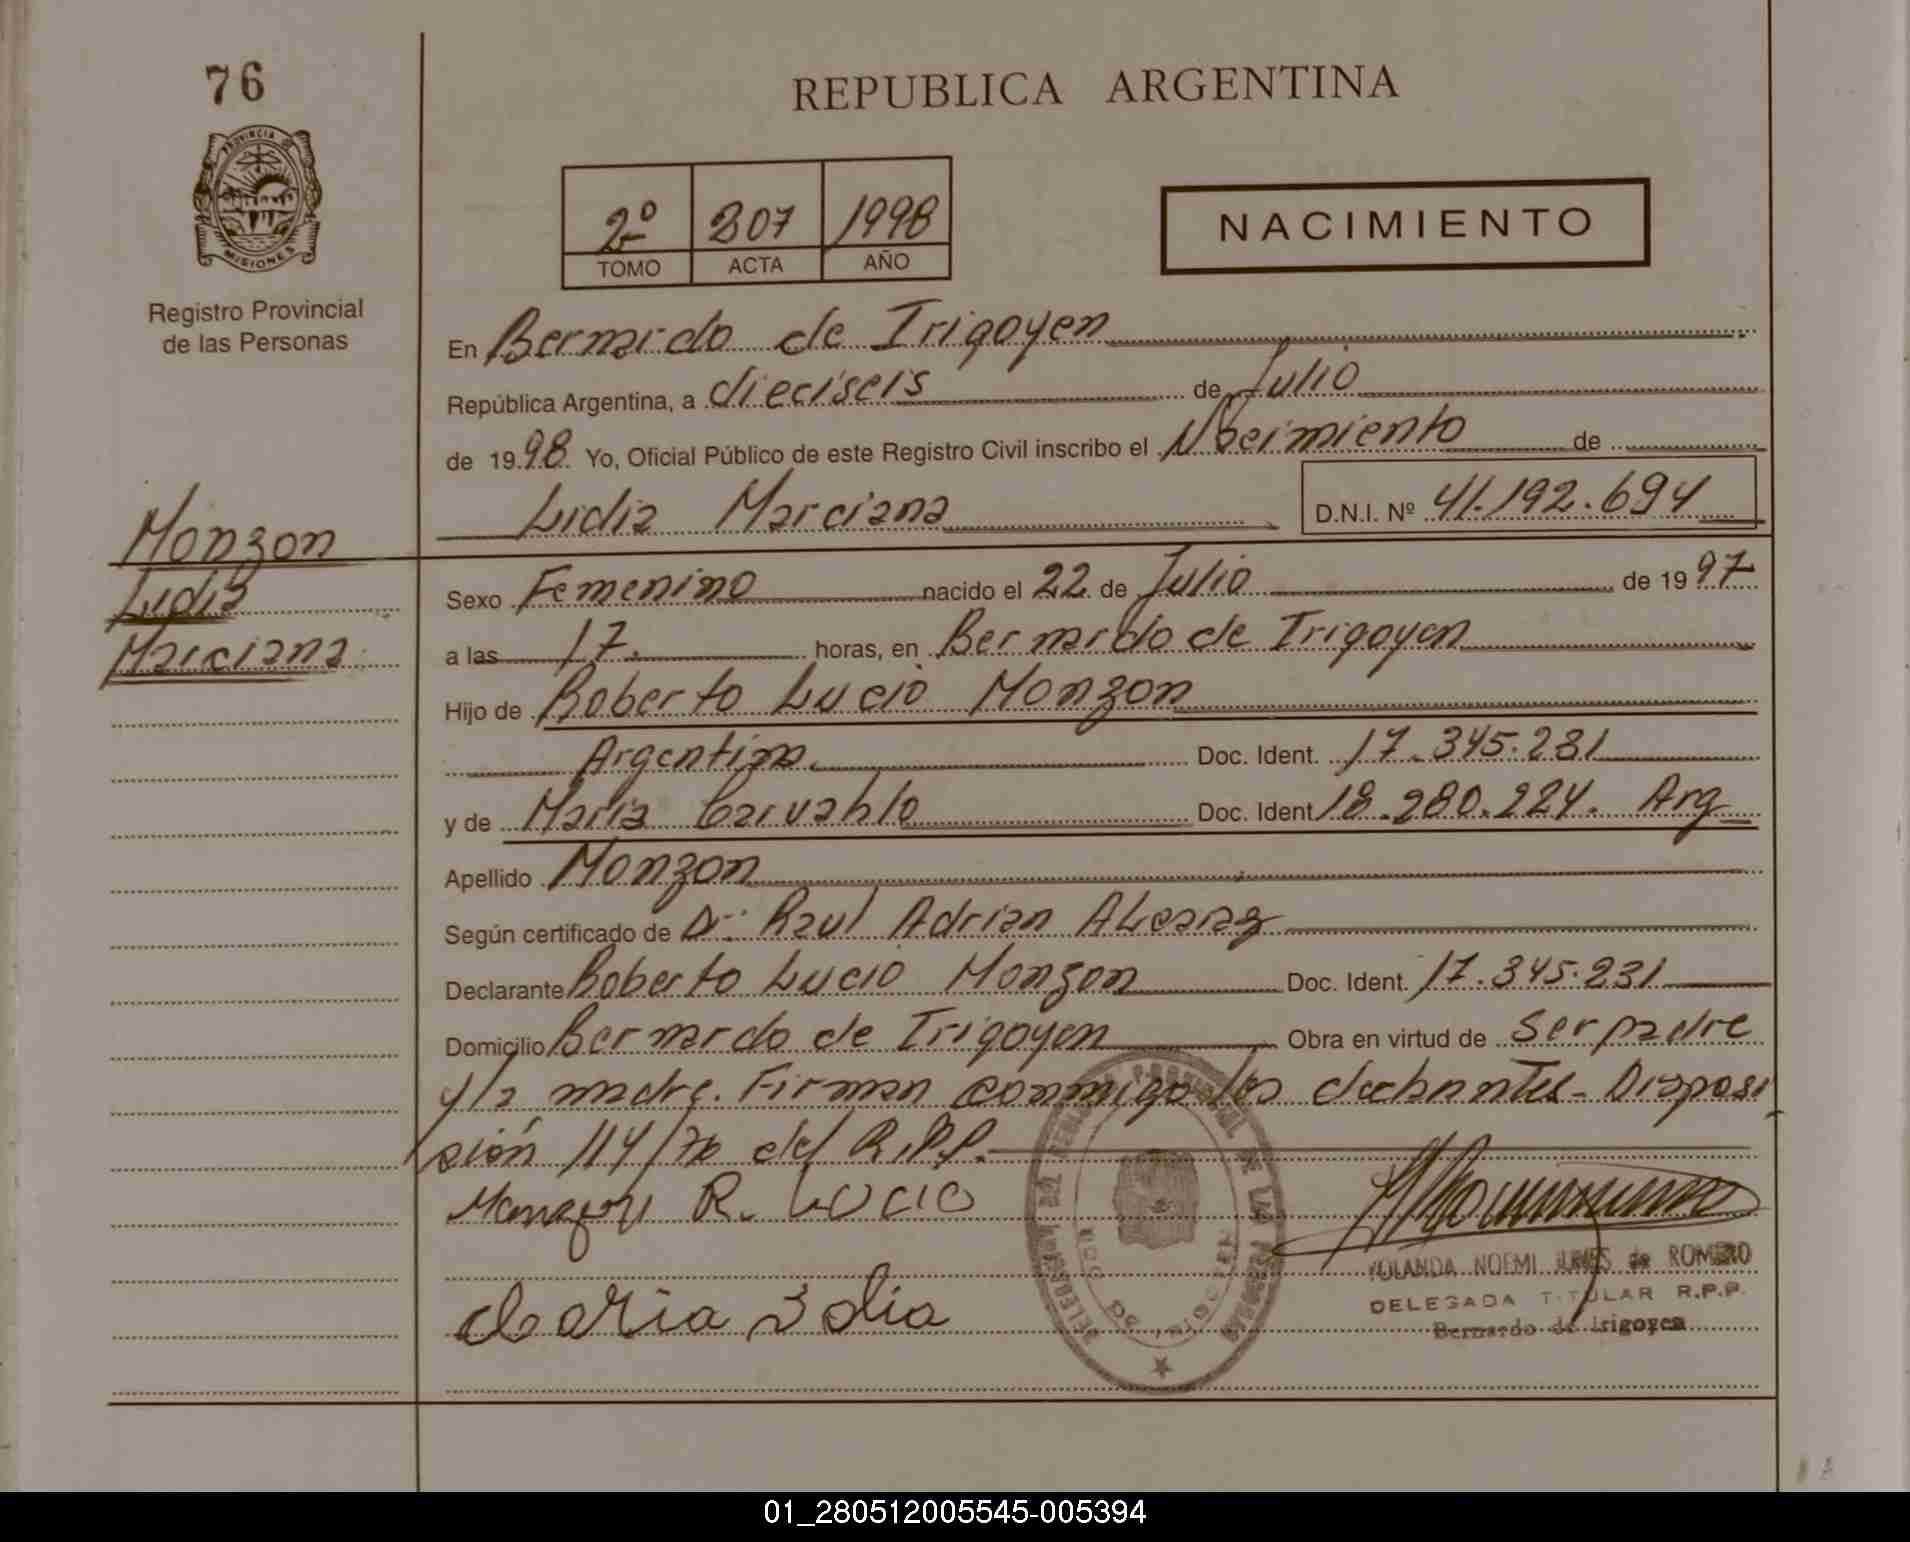 76
REPUBLICA ARGENTINA
PROVINCIA DE
MISIONES
Registro Provincial
de las Personas
2º 307 1998
TOMO ACTA AÑO
NACIMIENTO
En Bernardo de Irigoyen
República Argentina, a dieciseis de Julio
de 1998 Yo, Oficial Público de este Registro Civil inscribo el Nacimiento de
Lidia Marciana D.N.I. Nº 41.192.694
Monzon
Lidia
Marciana
Sexo Femenino nacido el 22 de Julio de 1997
a las 17. horas, en Bernardo de Irigoyen
Hijo de Roberto Lucio Monzon
Argentina. Doc. Ident. 17.345.231
y de Maria Carvahlo Doc. Ident 18.280.224. Arg
Apellido Monzon
Según certificado de Dr: Raul Adrian
Declarante Roberto Lucio Monzon Doc. Ident. 17.345.231
Domicilio Bernardo de Irigoyen Obra en virtud de Ser padre
y la madre. Firman conmigo los Disposi
sión 114/ del R.P.P.
R. Lucio
YOLANDA NOEMI de ROMERO
DELEGADA TITULAR R.P.P.
Bernardo de Irigoyen
01_280512005545-005394